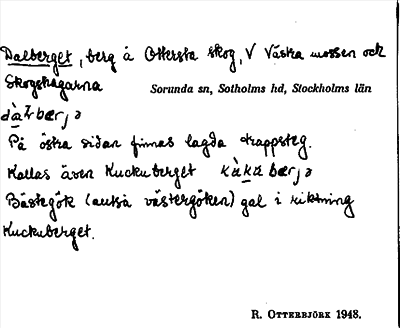 Dalberget, berg å Ottersta skog, V Västra mossen och
Skogshagarna
Sorunda sn, Sotholms hd, Stockholms län
På östra sidan finnas lagda trappsteg.
Kallas även Kuckuberget
Bästegök (också västergöken) gal i riktning
Kuckuberget.
R. Otterbjörk 1948.